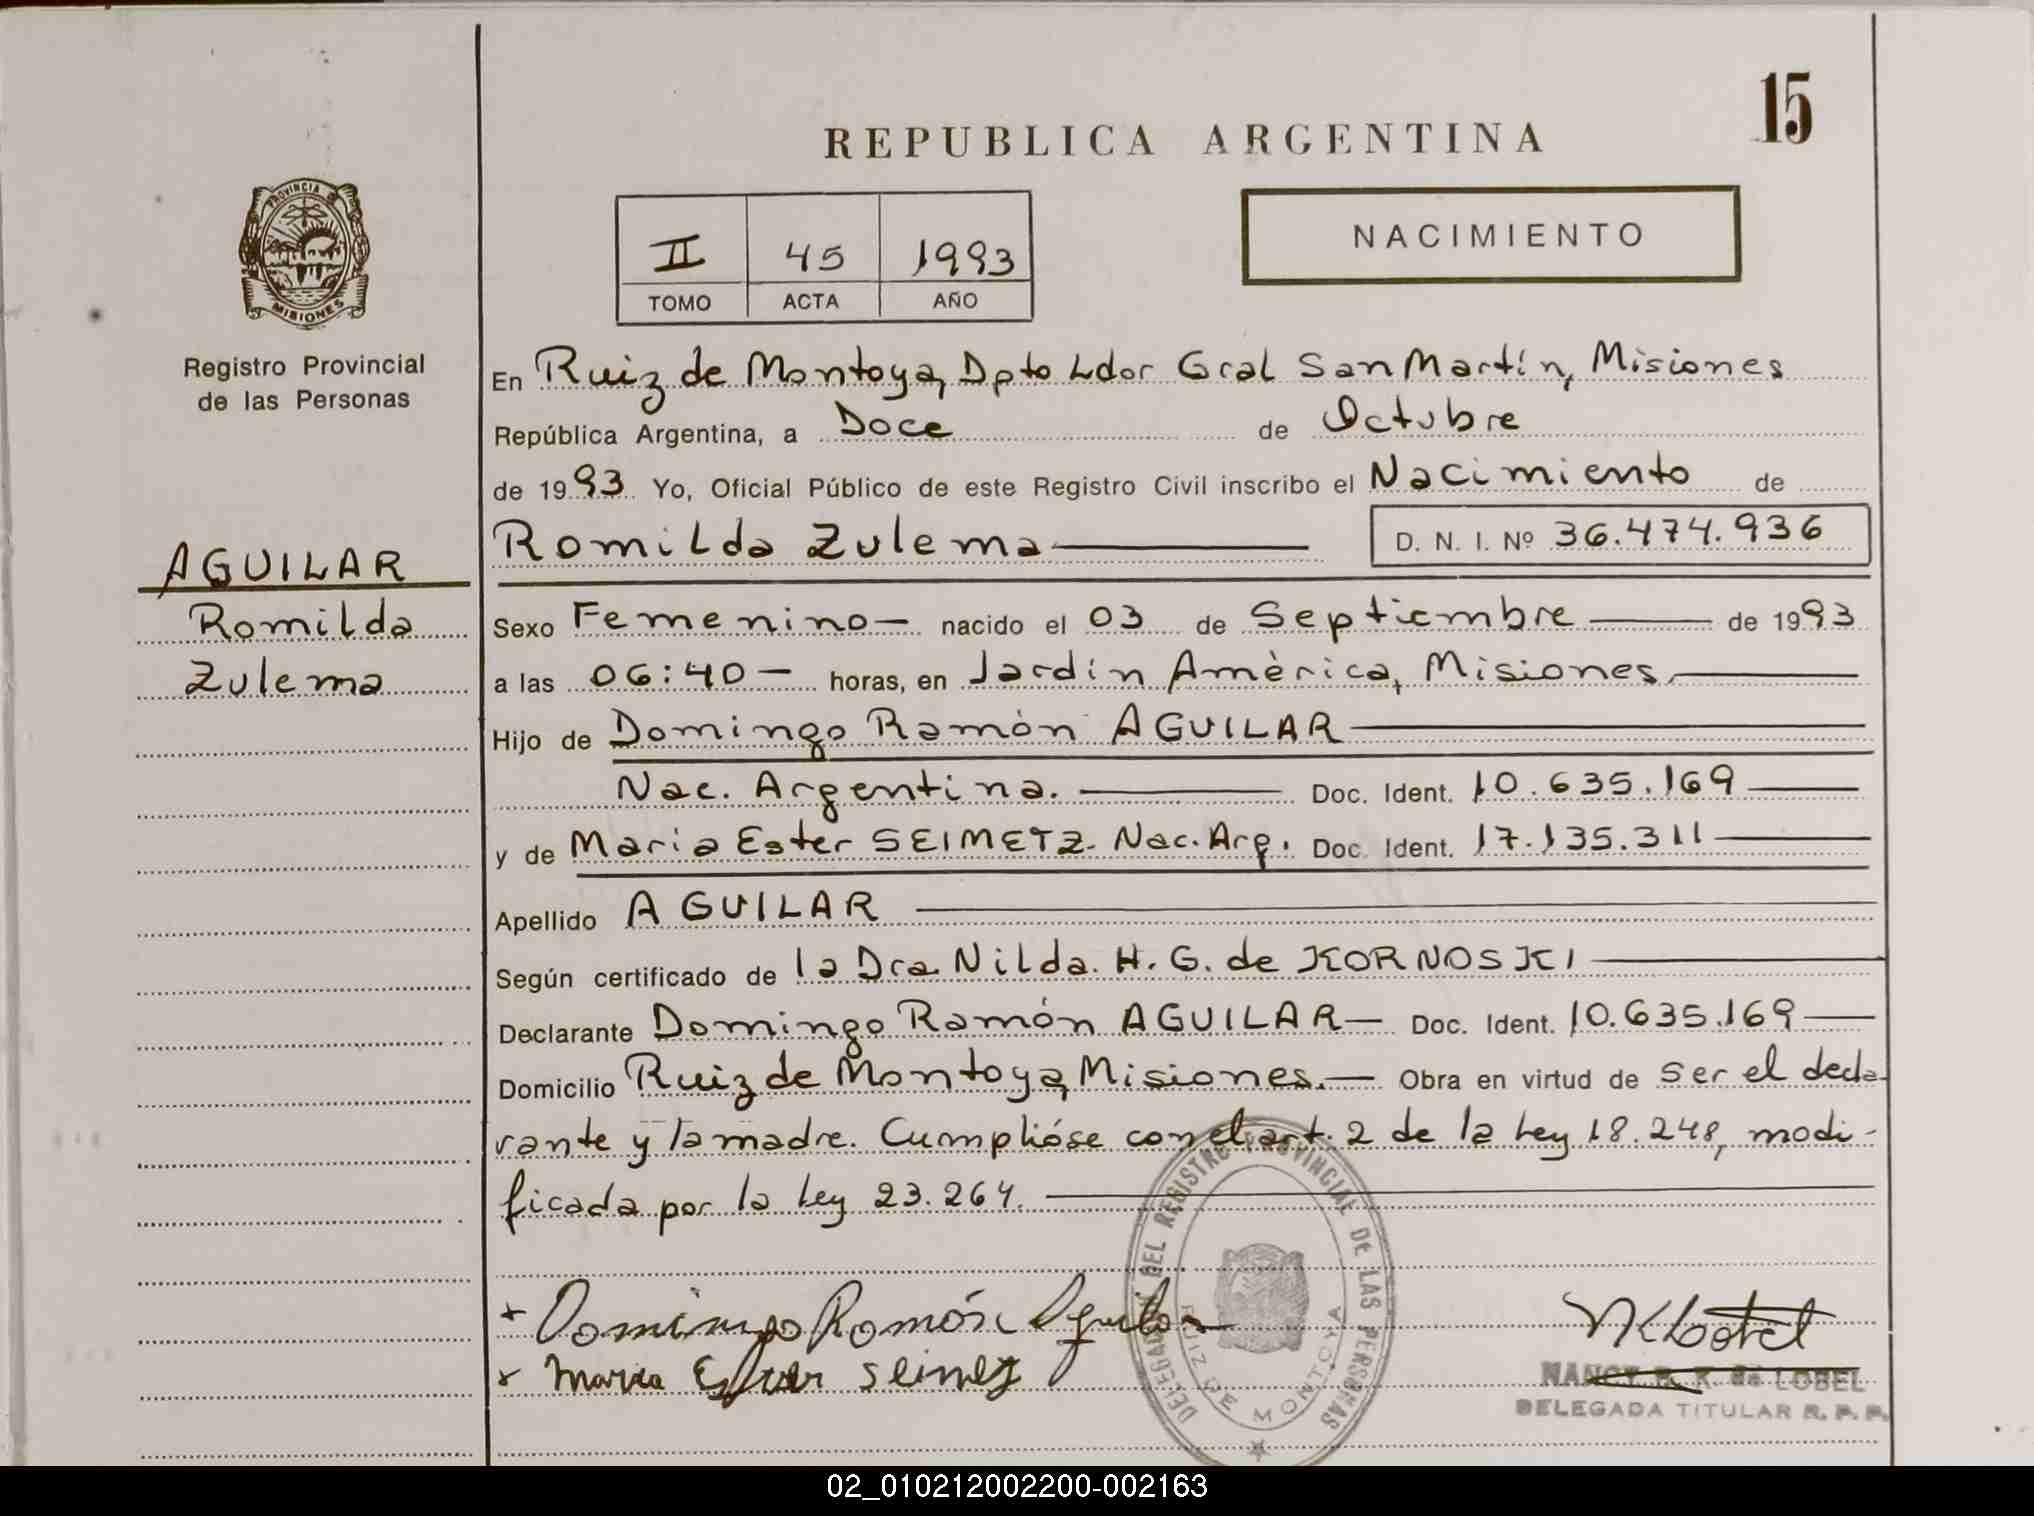 15
REPUBLICA ARGENTINA
PROVINCIA
MISIONES
II 45 1993
TOMO ACTA AÑO
NACIMIENTO
Registro Provincial
de las Personas
AGUILAR
Romilda
Zulema
En Ruiz de Montoya, Dpto Ldor Gral San Martín, Misiones
República Argentina, a Doce de Octubre
de 1993 Yo, Oficial Público de este Registro Civil inscribo el Nacimiento de
Romilda Zulema D. N. I. Nº 36.474.936
Sexo Femenino nacido el 03 de Septiembre de 1993
a las 06:40 horas, en Jardín Amèrica, Misiones
Hijo de Domingo Ramòn AGUILAR
Nac. Argentina. Doc. Ident. 10.635.169
y de Maria Ester SEIMETZ. Nac. Arg. Doc. Ident. 17.135.311
Apellido AGUILAR
Según certificado de la Dra. Nilda. H. G. de KORNOSKI
Declarante Domingo Ramón AGUILAR Doc. Ident. 10.635.169
Domicilio Ruiz de Montoya, Misiones. Obra en virtud de ser el decla-
rante y la madre. Cumplióse con el art. 2 de la Ley 18.248, modi-
ficada por la Ley 23.264.
Domingo Ramón Aguilar
Maria Ester Seimez
DELEGADA DEL REGISTRO PROVINCIAL DE LAS PERSONAS
RUIZ DE MONTOYA
NANCY R. K. de LOBEL
DELEGADA TITULAR R. P. P.
02_010212002200-002163